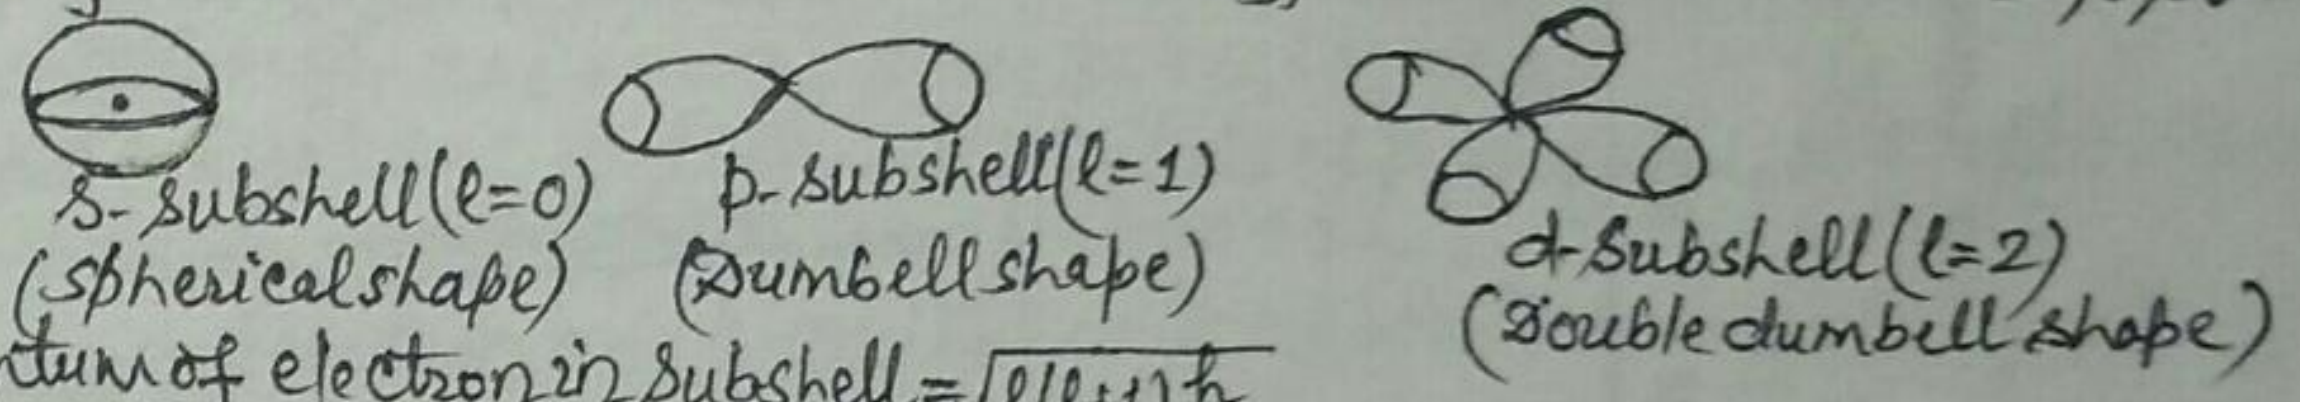 s-subshell(l=0)
(spherical shape)
p-subshell(l=1)
(Dumbell shape)
d-subshell(l=2)
(Double dumbell shape)
of electron in subshell =